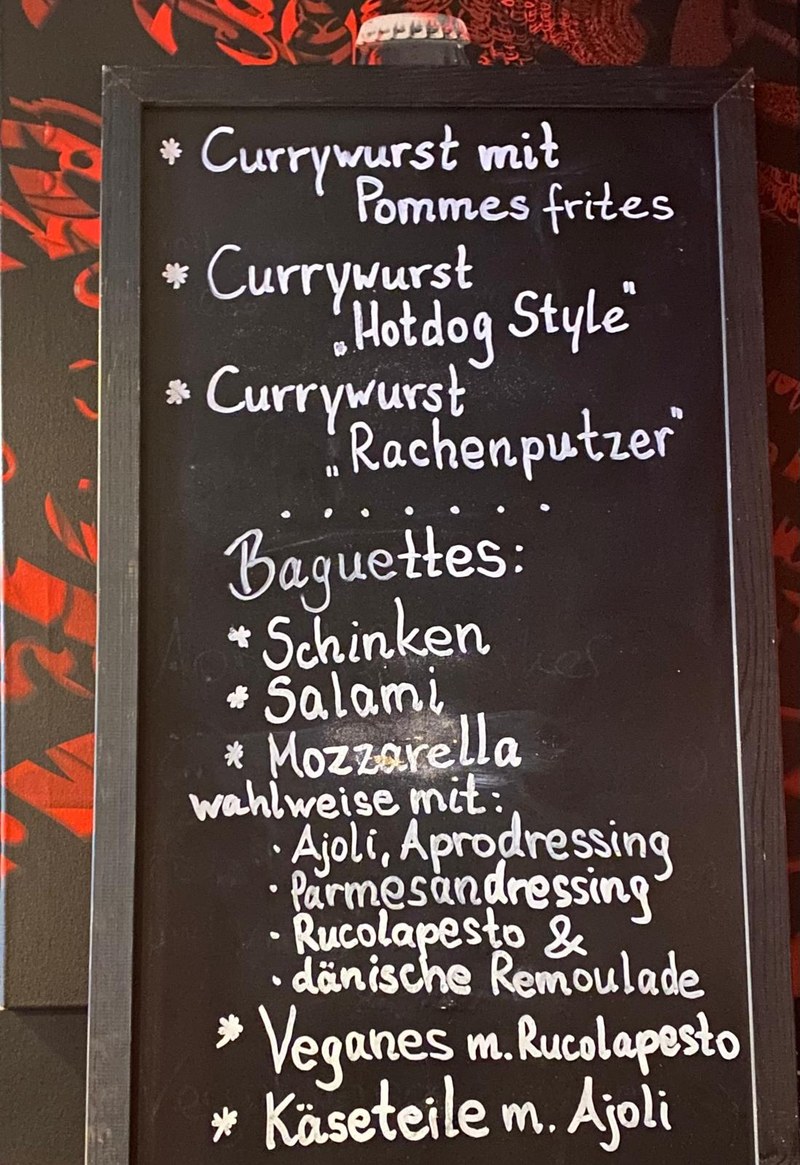 * Currywurst mit
Pommes frites
* Currywurst
„Hotdog Style"
* Currywurst
„Rachenputzer"
. . . . . . .
Baguettes:
* Schinken
* Salami
* Mozzarella
wahlweise mit:
· Ajoli, Aprodressing
· Parmesandressing
· Rucolapesto &
· dänische Remoulade
* Veganes m. Rucolapesto
* Käseteile m. Ajoli